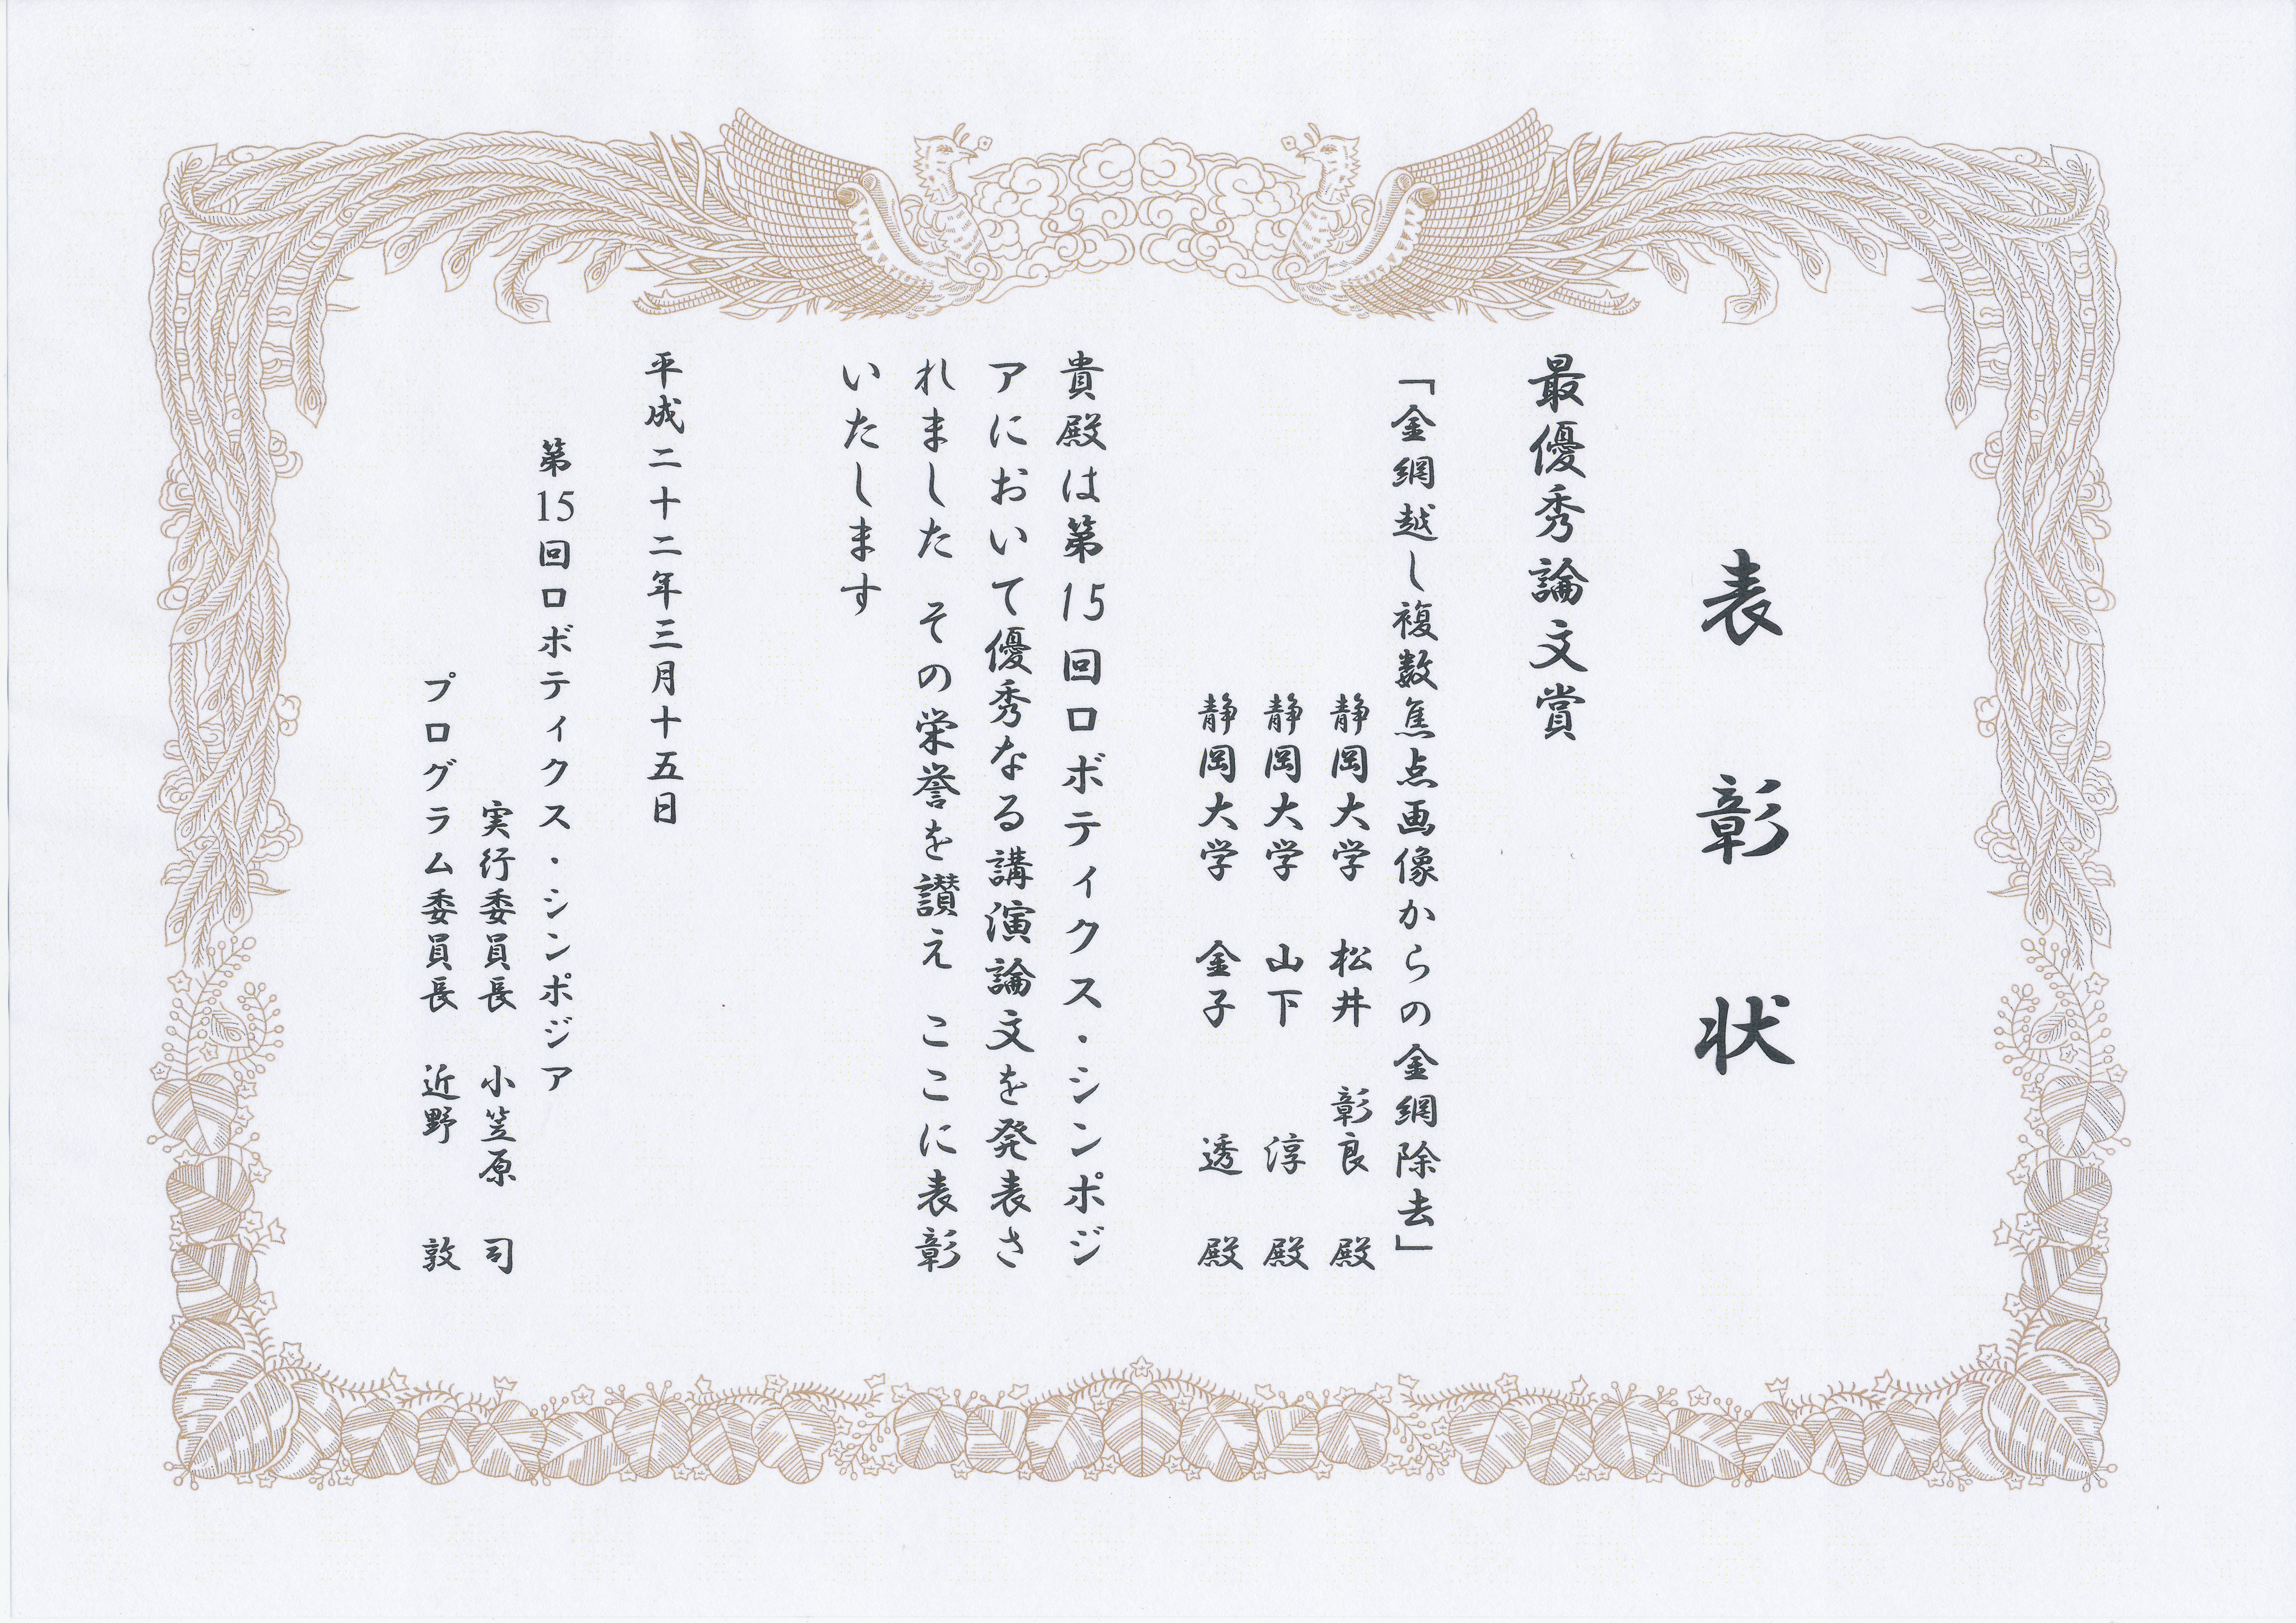 表彰状
最優秀論文賞
「金網越し複数焦点画像からの金網除去」
静岡大学 松井 彰良 殿
静岡大学 山下 淳 殿
静岡大学 金子 透 殿
貴殿は第15回ロボティクス・シンポジ
アにおいて優秀なる講演論文を発表さ
れました その栄誉を讃え ここに表彰
いたします
平成二十二年三月十五日
第15回ロボティクス・シンポジア
実行委員長 小笠原 司
プログラム委員長 近野 敦